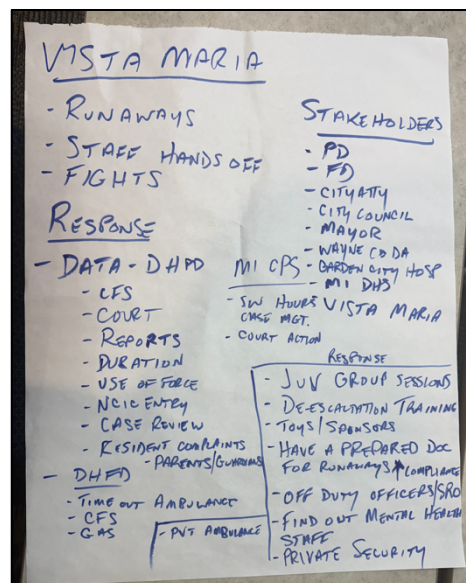 VISTA MARIA
- RUNAWAYS
- STAFF HANDS OFF
- FIGHTS
RESPONSE
- DATA - DHPD
- CFS
- COURT
- REPORTS
- DURATION
- USE OF FORCE
- NCIC ENTRY
- CASE REVIEW
- RESIDENT COMPLAINTS
- PARENTS/GUARDIANS
- DHFD
- TIME OUT AMBULANCE
- CFS
- GAS
- PVT AMBULANCE
MI CPS
- SW HOURS
CASE MGT.
- COURT ACTION
STAKEHOLDERS
- PD
- FD
- CITY ATTY
- CITY COUNCIL
- MAYOR
- WAYNE CO DA
- GARDEN CITY HOSP
- MI DHS
VISTA MARIA
RESPONSE
- JUV GROUP SESSIONS
- DE-ESCALTATION TRAINING
- TOYS/SPONSORS
- HAVE A PREPARED DOC
FOR RUNAWAYS COMPLIANCE
- OFF DUTY OFFICERS/SRO
- FIND OUT MENTAL HEALTH
STAFF
- PRIVATE SECURITY